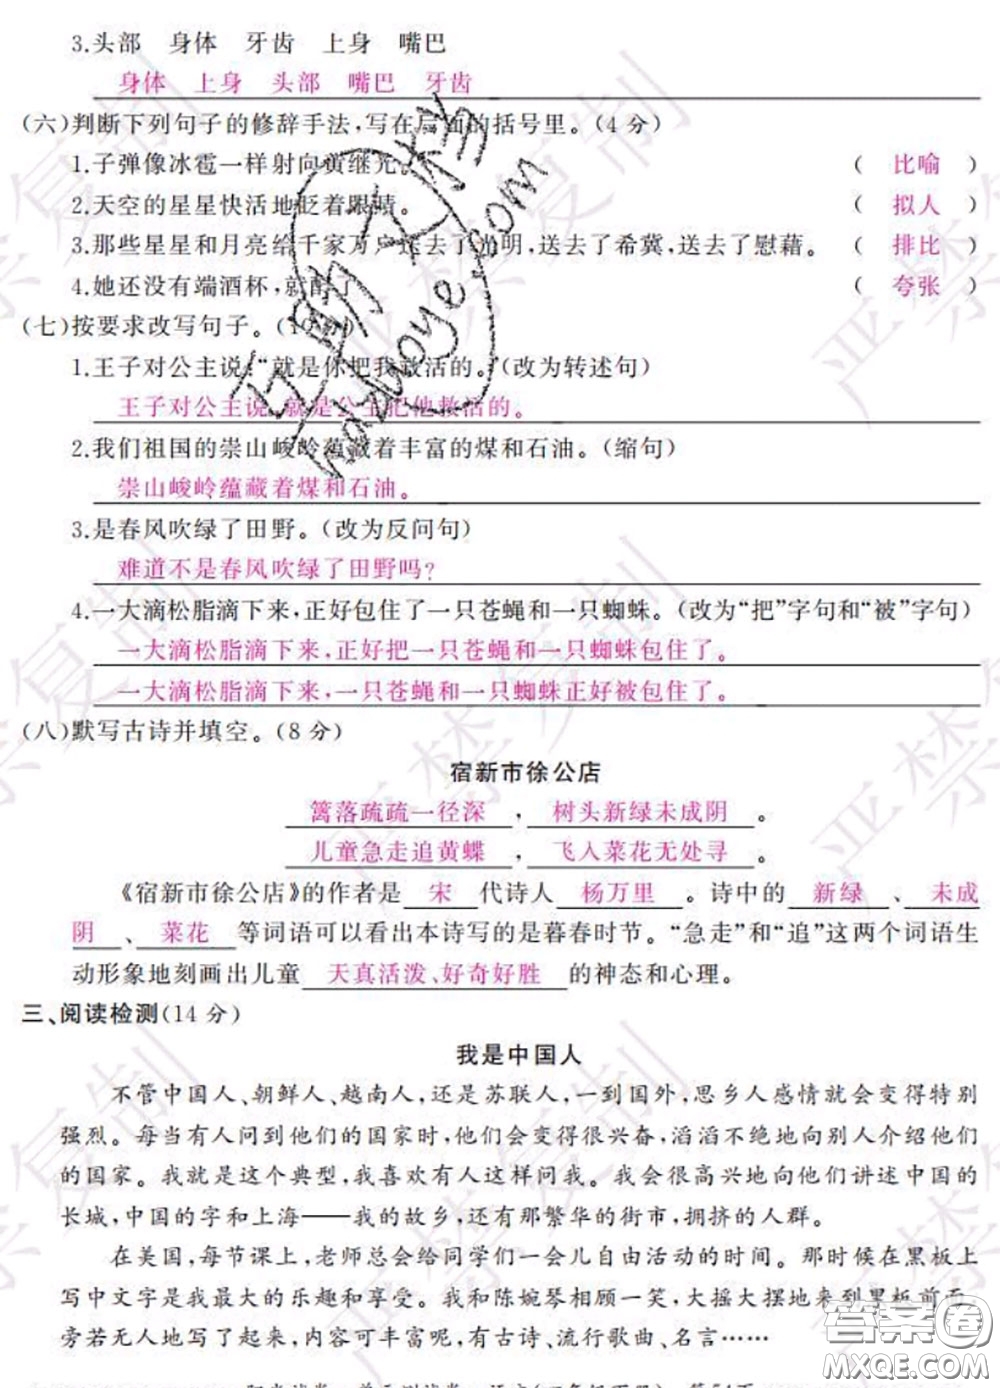 3.头部 身体 牙齿 上身 嘴巴
身体 上身 头部 嘴巴 牙齿
(六)判断下列句子的修辞手法,写在后面的括号里。(4分)
1.子弹像冰雹一样射向黄继光。 ( 比喻 )
2.天空的星星快活地眨着眼睛。 ( 拟人 )
3.那些星星和月亮给千家万户送去了光明,送去了希冀,送去了慰藉。 ( 排比 )
4.她还没有端酒杯,就醉了 ( 夸张 )
(七)按要求改写句子。
1.王子对公主说:“就是你把我救活的。(改为转述句)
王子对公主说,就是公主把他救活的。
2.我们祖国的崇山峻岭蕴藏着丰富的煤和石油。(缩句)
崇山峻岭蕴藏着煤和石油。
3.是春风吹绿了田野。(改为反问句)
难道不是春风吹绿了田野吗?
4.一大滴松脂滴下来,正好包住了一只苍蝇和一只蜘蛛。(改为“把”字句和“被”字句)
一大滴松脂滴下来,正好把一只苍蝇和一只蜘蛛包住了。
一大滴松脂滴下来,一只苍蝇和一只蜘蛛正好被包住了。
(八)默写古诗并填空。(8分)
宿新市徐公店
篱落疏疏一径深,树头新绿未成阴。
儿童急走追黄蝶,飞入菜花无处寻。
《宿新市徐公店》的作者是 宋 代诗人 杨万里 。诗中的 新绿 、 未成
阴 、 菜花 等词语可以看出本诗写的是暮春时节。“急走”和“追”这两个词语生
动形象地刻画出儿童 天真活泼、好奇好胜 的神态和心理。
三、阅读检测(14分)
我是中国人
不管中国人、朝鲜人、越南人,还是苏联人,一到国外,思乡人感情就会变得特别
强烈。每当有人问到他们的国家时,他们会变得很兴奋,滔滔不绝地向别人介绍他们
的国家。我就是这个典型,我喜欢有人这样问我。我会很高兴地向他们讲述中国的
长城,中国的字和上海——我的故乡,还有那繁华的街市,拥挤的人群。
在美国,每节课上,老师总会给同学们一会儿自由活动的时间。那时候在黑板上
写中文字是我最大的乐趣和享受。我和陈婉琴相顾一笑,大摇大摆地来到黑板前面,
旁若无人地写了起来,内容可丰富呢,有古诗、流行歌曲、名言……
严禁复制
互助文档
hdzuoye.com
答案圈
MXQE.COM